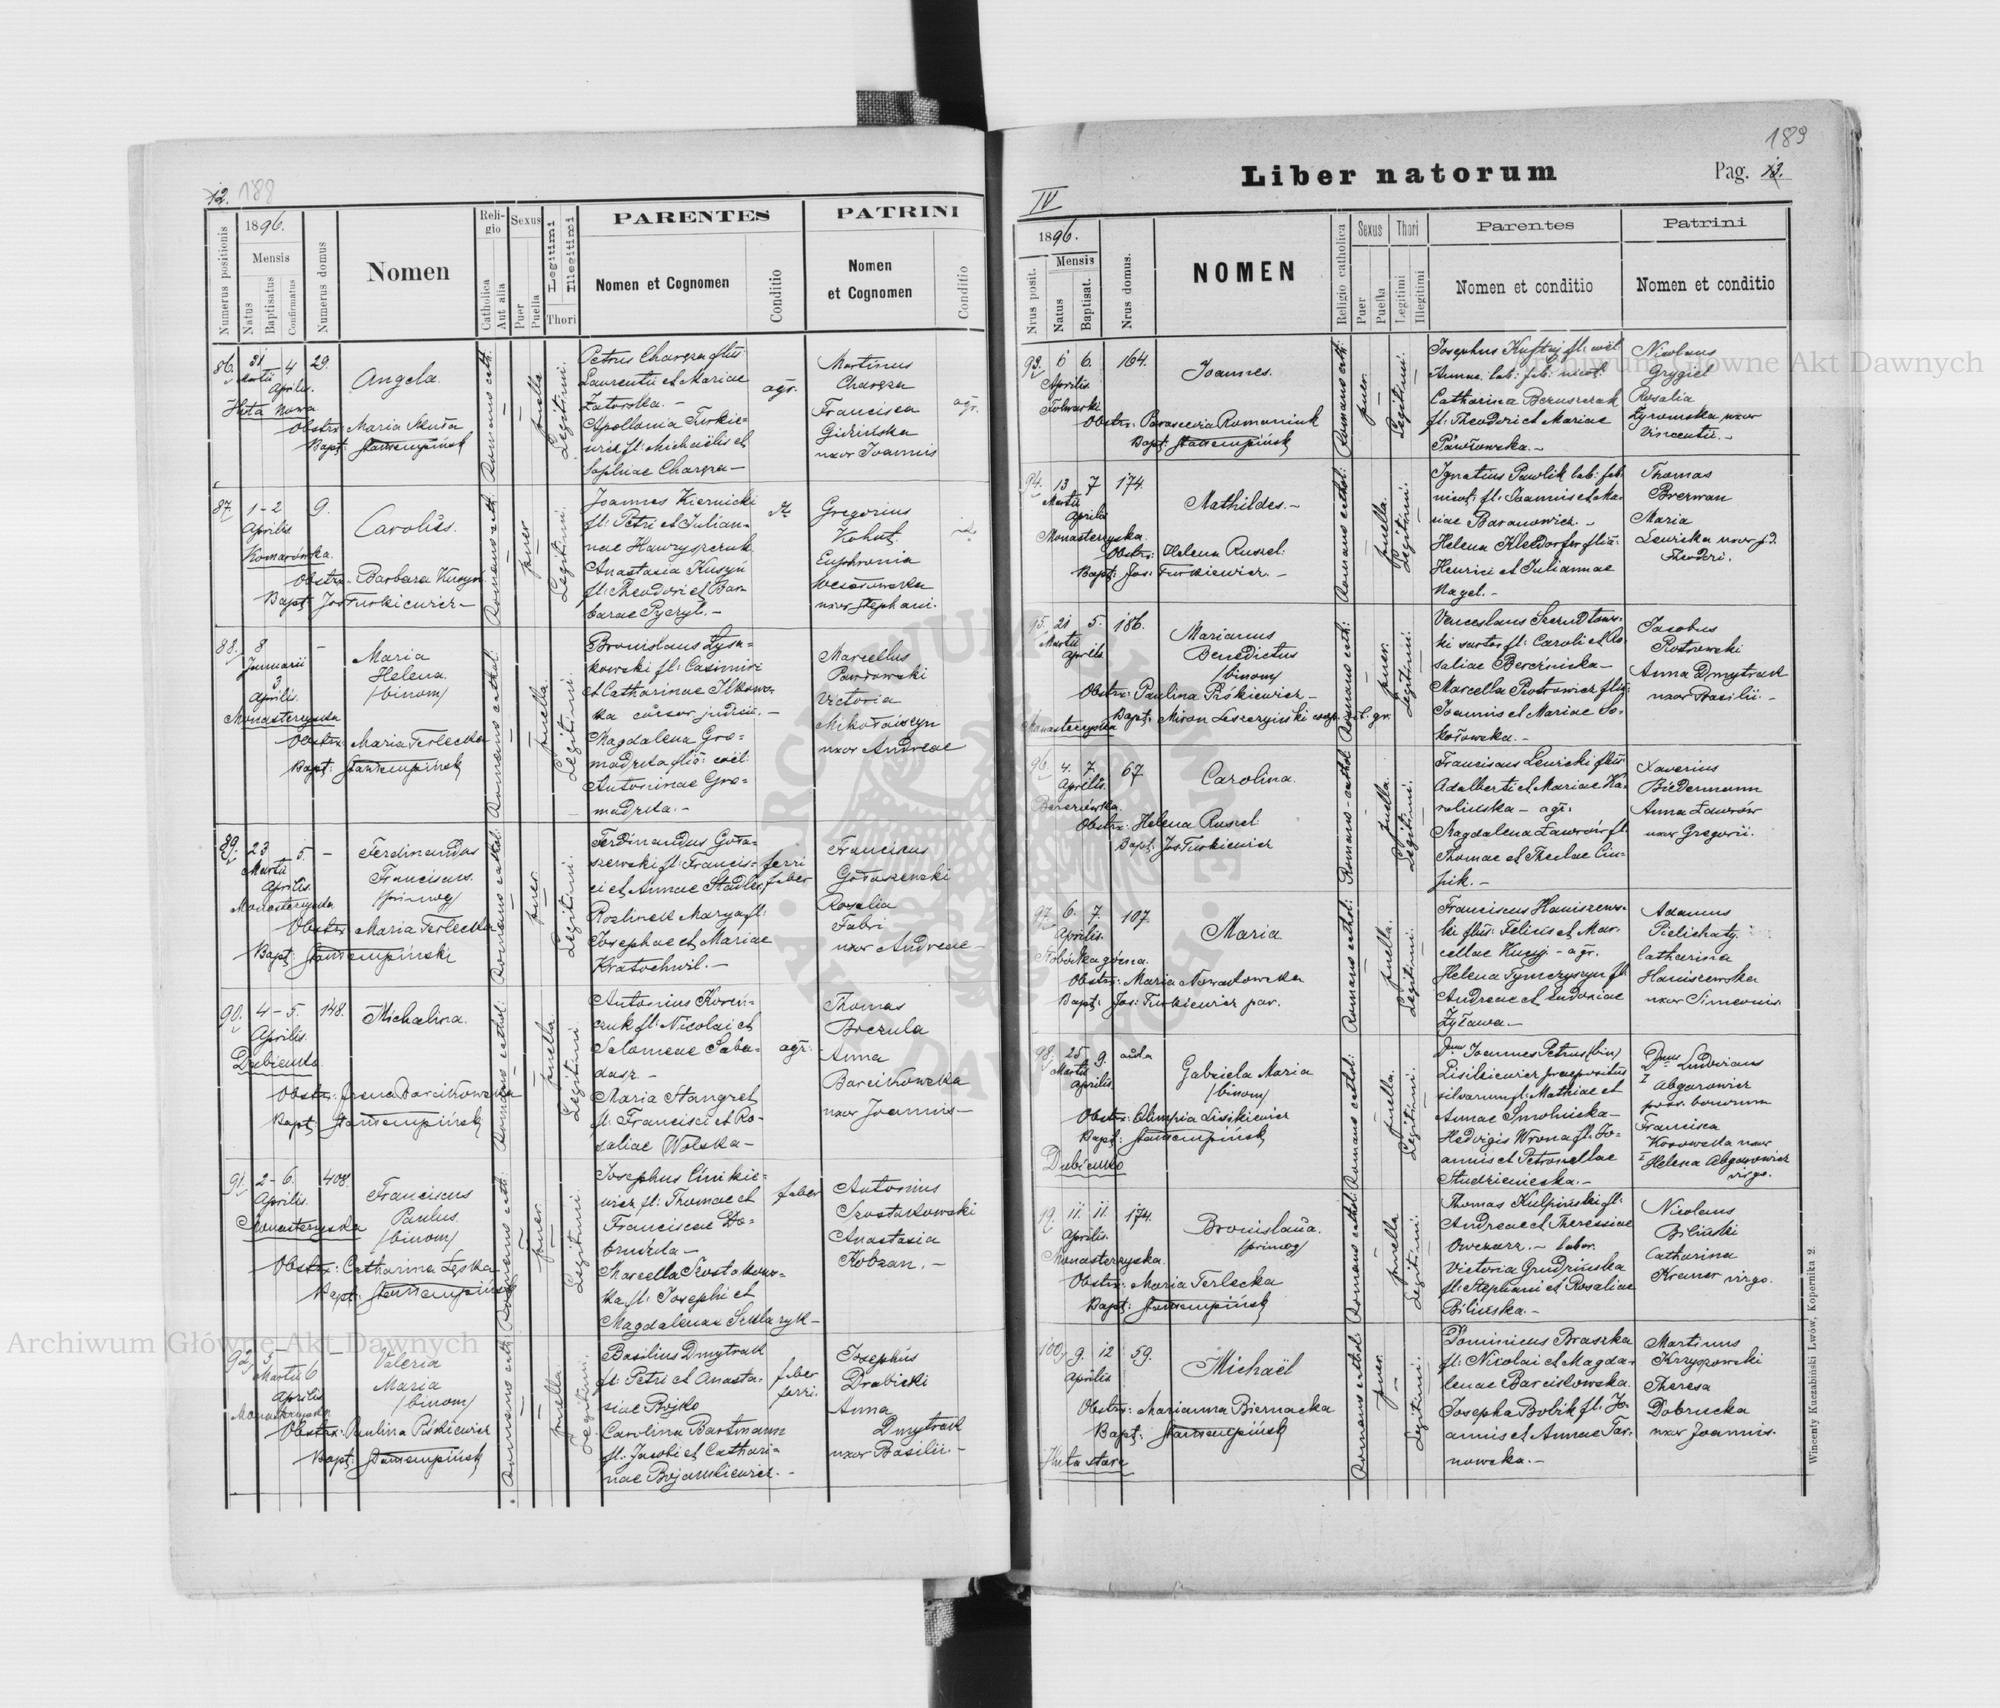 12. 188
1896.
Numerus positionis
Mensis
Natus
Baptisatus
Confirmatus
Numerus domus
Nomen
Religio
Catholica
Aut alia
Sexus
Puer
Puella
Legitimi
Illegitimi
Thori
PARENTES
Nomen et Cognomen
Conditio
PATRINI
Nomen
et Cognomen
Conditio
86. 31 4 29.
Martii Aprilis.
Huta nowa
Angela.
Obstrx: Maria
Bapt:
Romano cath.
puella
Legitimi.
Petrus Charęza filius
Laurentii et Mariae
Zatorska. –
Apollonia Turkie=
wicz fl: Michaëlis et
Sophiae Charęza –
agr.
Martinus
Charęza
Francisca
uxor Joannis
agr.
87. 1 – 2 9.
Aprilis.
Komarówka.
Carolus.
Obstrx. Barbara Kusyń
Bapt Jos Turkiewicz –
Romano cath.
puer
Legitimi.
Joannes Kiernicki
fl: Petri et Julian=
nae Hawryszczuk
Anastasia Kusyń
fl: Theodori et Bar=
barae Pyczyl. –
Gregorius
Kohut.
Euphronia
uxor Stephani.
88. 8 –
Januarii
3
Aprilis.
Monasterzyska
Maria
Helena.
/binom/
Obstrx: Maria Terlecka
Bapt:
Romano cathol:
puella.
Legitimi.
Bronislaus Łysa=
kowski fl: Casimiri
et Catharinae Ilkows=
ka cursor judic. –
Magdalena Gro=
madzka filia coël:
Antoninae Gro=
madzka. –
Marcellus
Pawłowski
Victoria
Mikołaiszyn
uxor Andreae
89. 23 5. –
Martii
Aprilis.
Monasterzyska
Ferdinandus
Franciscus.
/primog/
Obstrx Maria Terlecka
Bapt:
Romano cathol:
puer.
Legitimi.
Ferdinandus Goła=
szewski fl: Francis=
ci et Annae Stadler
Rozlinek Marya fl:
Josephae et Mariae
Kratochwil. –
ferri
faber
Franciscus
Gołaszewski
Rosalia
Fabri
uxor Andreae –
90. 4 – 5. 148.
Aprilis.
Dubienko.
Michalina.
Obstrx: Anna Barcikowska
Bapt:
Romano cathol:
puella.
Legitimi.
Antonius Koreń=
czuk fl: Nicolai et
Salomeae Saba=
dasz –
Maria Stangret
fl: Francisci et Ro=
saliae Wolska –
agr:
Thomas
Brezula
Anna
Barcikowska
uxor Joannis –
91. 2 – 6. 408
Aprilis.
Monasterzyska
Franciscus
Paulus.
/binom/
Obstrx: Catharina Lęska
Bapt:
Romano cath:
puer.
Legitimi.
Josephus Cimkie=
wicz fl: Thomae et
Franciscae Do=
bruńka –
Marcella Szostakows=
ka fl: Josephi et
Magdalenae Szklaryk –
faber
Antonius
Szostakowski
Anastasia
Kobzan. –
92. 5 –
Martii 6 –
Aprilis
Monasterzyska.
Valeria
Maria
/binom/
Obstrx: Paulina Piśkiewicz
Bapt:
Romano cath:
puella
Legitimi.
Basilius Dmytrak
fl: Petri et Anasta=
siae Bojko
Carolina Bartmann
fl: Jacobi et Cathari=
nae Bojankiewicz. –
faber
ferri.
Josephus
Drabicki
Anna
Dmytrak
uxor Basilii –
189
Liber natorum
Pag. 13.
IV
1896.
Nrus posit.
Mensis
Natus
Baptisat.
Nrus domus.
NOMEN
Religio catholica
Sexus
Puer
Puella
Thori
Legitimi
Illegitimi
Parentes
Nomen et conditio
Patrini
Nomen et conditio
93. 6 6. 164.
Aprilis
Folwarki
Joannes.
Obstrx: Parascevia Romaniuk
Bapt:
Romano cath:
puer.
Legitimi.
Josephus Kuftaj fl: coël
Annae lab: fab: nicot.
Catharina Beruszczak
fl: Theodori et Mariae
Pawłowska. –
Nicolaus
Grygiel
Rosalia
Żyromska uxor
Vincentii. –
94. 13 7 174.
Martii
Aprilis
Monasterzyska.
Mathildes. –
Obstrx: Helena Russel.
Bapt: Jos: Turkiewicz. –
Romano cathol:
puella.
Legitimi.
Ignatius Pawlik lab: fab:
nicot: fl: Joannis et Ma=
riae Baranowicz. –
Helena Kleldorfer filia:
Henrici et Juliannae
Nagel. –
Thomas
Brezwan
Maria
Lewicka uxor
Theodori.
95. 21 5. 186.
Martii
Aprilis
Marianus
Benedictus
/binom/
Obstrx: Paulina Piśkiewicz –
Bapt: Miron Leszczyński coop. rit. gr.
Monasterzyska
Romano cath:
puer.
Legitimi.
Venceslaus Szendłows=
ki sartor fl: Caroli et Ro=
saliae Bereźnicka –
Marcella Piotrowicz filia:
Joannis et Mariae So=
kołowska. –
Jacobus
Rostrowski
Anna Dmytrak
uxor Basilii –
96. 4. 7. 67
Aprilis.
Bereziówka.
Carolina.
Obstrx: Helena Russel
Bapt: Jos Turkiewicz
Romano-cathol:
puella.
Legitimi.
Franciscus Lewicki filius
Adalberti et Mariae Ka=
rolińska – agr:
Magdalena Ławrów fl:
Thomae et Theclae Ciu=
pik. –
Xaverius
Biedermann
Anna Ławrów
uxor Gregorii.
97. 6. 7. 107
Aprilis.
Słobódka górna.
Maria
Obstrx: Maria Nowakowska
Bapt: Jos: Turkiewicz par.
Romano cathol:
puella.
Legitimi.
Franciscus Haniszews=
ki filius: Felicis et Mar=
cellae Kusyj – agr.
Helena Tymczyszyn fl:
Andreae et Eudoxiae
Żyława –
Adamus
Pielichaty.
Catharina
Haniszewska
uxor Simeonis.
98. 25 9. aula
Martii
Aprilis
Gabriela Maria
/binom/
Obstrx: Olimpia Lisikiewicz
Bapt:
Dubienko
Romano cathol:
puella.
Legitimi.
Dnus Joannes Petrus /bin/
Lisikiewicz praepositus
silvarum fl: Mathiae et
Annae Smolnicka –
Hedvigis Wrona fl: Jo=
annis et Petronellae
Studzieniecka. –
Dnus Ludovicus
Abgarowicz
poss. bonorum
Francisca
Kosowska uxor
Helena Abgarowicz
virgo.
11 11 174.
Aprilis.
Monasterzyska.
Bronislava.
/primog/
Obstrx: Maria Terlecka
Bapt:
Romano cathol:
puella
Legitimi.
Thomas Kulpiński fl:
Andreae et Theressiae
Owczarz. – labor.
Victoria Grudzińska
fl: Stephani et Rosaliae
Bilińska. –
Nicolaus
Biliński
Catharina
Kramer virgo.
100. 9. 12 59.
Aprilis
Michaël
Obstrx: Marianna Biernacka
Bapt:
Huta stara
Romano cathol:
puer.
Legitimi.
Dominicus Braszka
fl: Nicolai et Magda=
lenae Barcikowska.
Josepha Bobik fl: Jo=
annis et Annae Tar=
nowska. –
Martinus
Krzyszowski
Theresa
Dobrucka
uxor Joannis.
Wincenty Kuczabiński Lwów, Kopernika 2.
Archiwum Główne Akt Dawnych
Archiwum Główne Akt Dawnych
ARCHIWUM GŁÓWNE AKT DAWNYCH